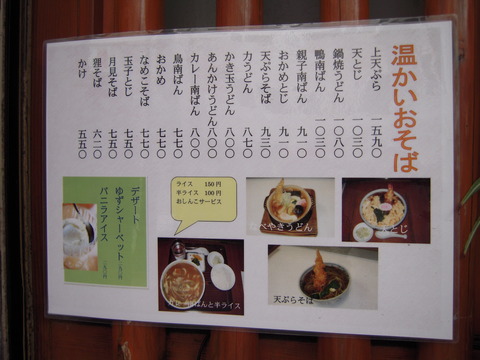 温かいおそば
上天ぷら 一五九〇
天とじ 一〇三〇
鍋焼うどん 一〇八〇
鴨南ばん 一〇三〇
親子南ばん 九一〇
おかめとじ 九一〇
天ぷらそば 九三〇
力うどん 八七〇
かき玉うどん 八〇〇
あんかけうどん 八〇〇
カレー南ばん 八〇〇
鳥南ばん 七七〇
おかめ 七七〇
なめこそば 七七〇
玉子とじ 七五〇
月見そば 七五〇
狸そば 六二〇
かけ 五五〇
デザート
ゆずシャーベット
バニラアイス
ライス 150円
半ライス 100円
おしんこサービス
なべやきうどん
天とじ
ばんと半ライス
天ぷらそば